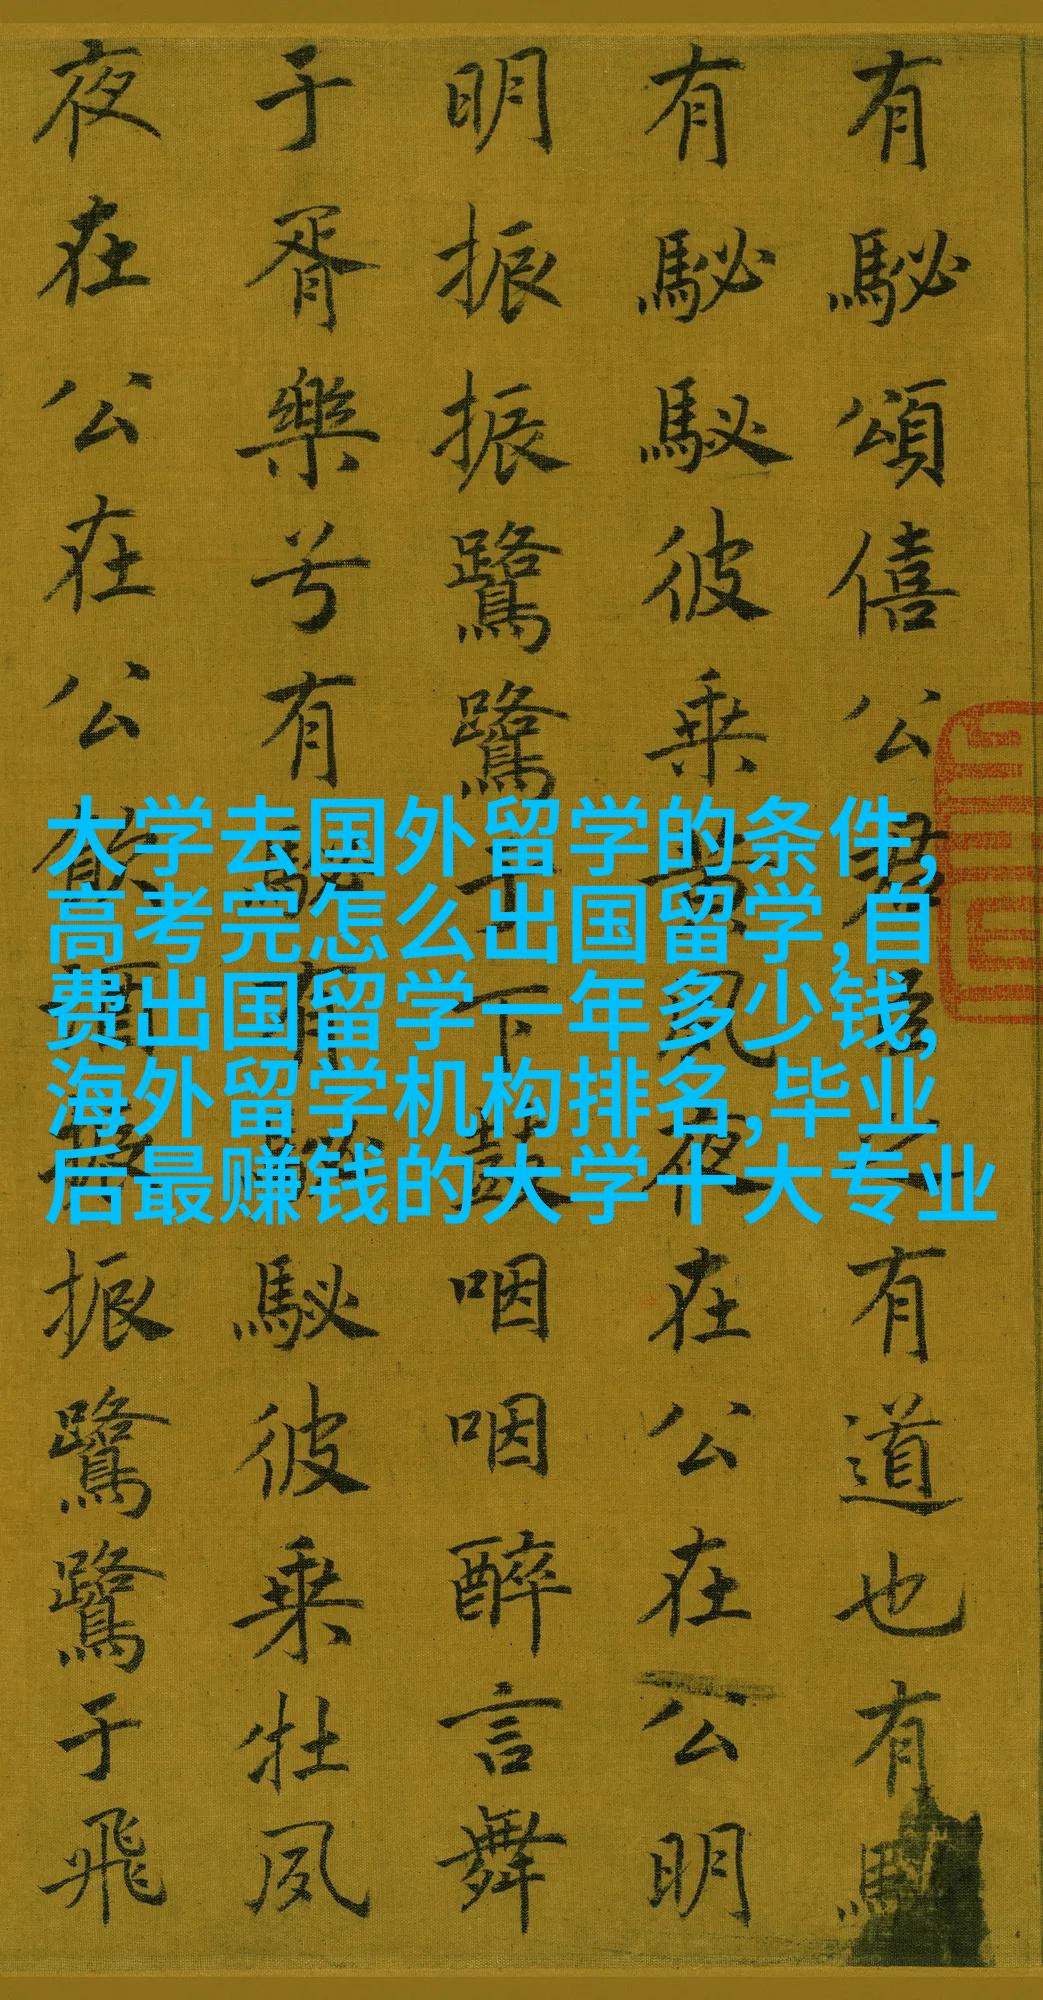 大学去国外留学的条件,
高考完怎么出国留学,自
费出国留学一年多少钱,
海外留学机构排名,毕业
后最赚钱的大学十大专业
有駜頌僖公君臣之有道也有
有駜駜彼乘黃夙夜在公在公明
明振振鷺鷺于下鼓咽咽醉言舞
于胥樂兮有駜有駜駜彼乘牡夙
夜在公在公飲酒振振鷺鷺于飛